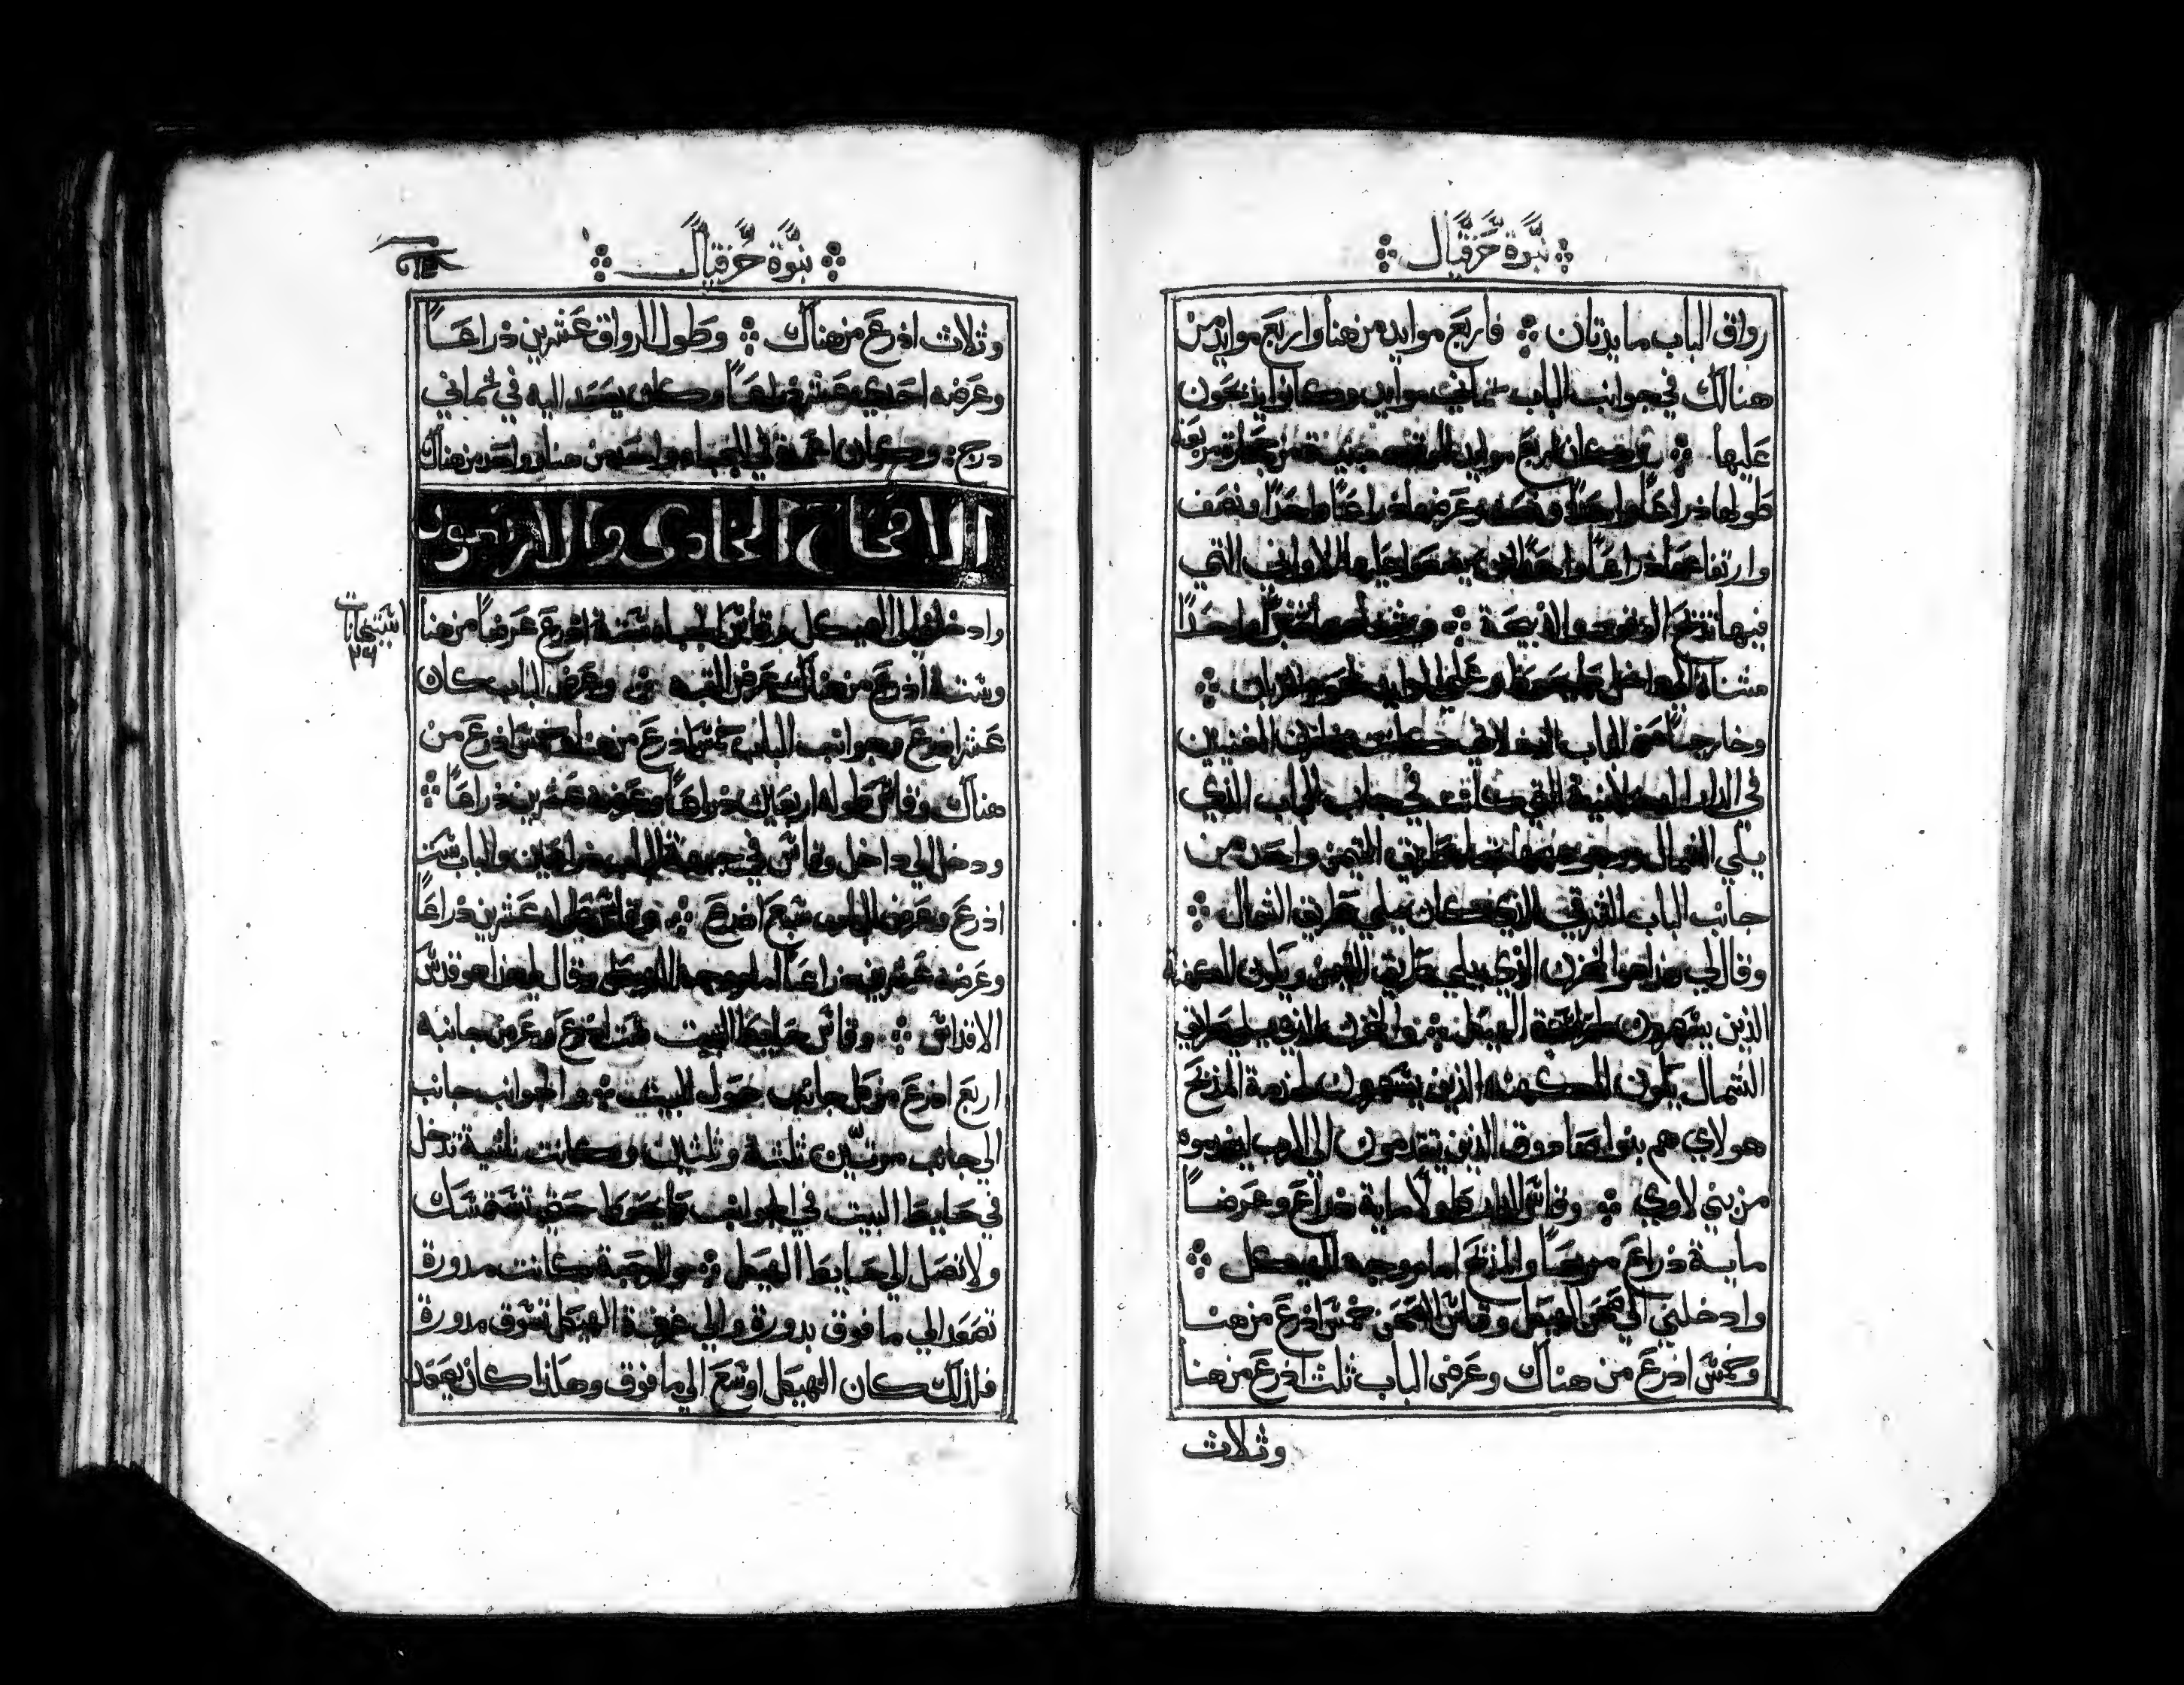 نبوة حزقيال
رواق الباب مايدتان فاربع موايد من هنا واربع موايد من
هنالك في جوانب الباب ثماني موايد وكانوا يذبحون
عليها وكان اربع موايد من حجارة مربعة
طولها ذراعًا واحدًا ونصف وعرضها ذراعًا واحدًا ونصف
وارتفاعها ذراعًا واحدًا الاواني التي
فيها تذبح الوقود والذبيحة واحدًا
مثناة الى داخل على الموايد لحوم القربان
وخارجًا من الباب الداخلاني كانت مخازن المغنيين
في الدار الداخلانية التي كانت في جانب الباب الذي
يلي الشمال طريق التيمن واحد من
جانب الباب الشرقي الذي كان يلي طريق الشمال
وقال لي هذا هو المخزن الذي يلي طريق التيمن ويكون للكهنة
الذين يسهرون في حراسة الهيكل والمخزن الذي يلي طريق
الشمال يكون للكهنه الذين يسهرون لخدمة المذبح
هولاي هم بنوا صادوق الذين يتقدمون الى الرب ليخدموه
من بني لاوي وقاس الدار طولًا ماية ذراع وعرضًا
ماية ذراع مربعًا والمذبح امام وجه الهيكل
وادخلني الى صحن الهيكل وقاس الصحن خمس اذرع من هنا
وخمس اذرع من هناك وعرض الباب ثلث اذرع من هنا
وثلاث
نبوة حزقيال
وثلاث اذرع من هناك وطول الرواق عشرين ذراعًا
وعرضه احدي عشر ذراعًا وكان يصعد اليه في ثماني
درج وكان اعمدة في الجباه واحد من هنا وواحد من هناك
الاصحاح الحادي والاربعون
وادخلني الى الهيكل وقاس الجباه ستة اذرع عرضًا من هنا
وستة اذرع من هناك عرض القبه وعرض الباب كان
عشر اذرع وجوانب الباب خمس اذرع من هنا وخمس اذرع من
هناك وقاس طوله اربعين ذراعًا وعرضه عشرين ذراعًا
ودخل الى داخل وقاس في جبهة الباب ذراعين والباب ست
اذرع وعرض الباب سبع اذرع وقاس طوله عشرين ذراعًا
وعرضه عشرين ذراعًا امام وجه الهيكل وقال لي هذا هو قدس
الاقداس وقاس حايط البيت ست اذرع وعرض جانبه
اربع اذرع من كل جانب حول البيت والجوانب جانب
الي جانب مرتين ثلثة وثلثين وكانت ناتية تدخل
في حايط البيت في الجوانب تستمسك
ولا تصل الي حايط الهيكل والرحبة كانت مدورة
تصعد الي ما فوق بدورة والي الهيكل تسوق مدورة
فلذلك كان الهيكل اوسع الي ما فوق وهكذا كان يصعد